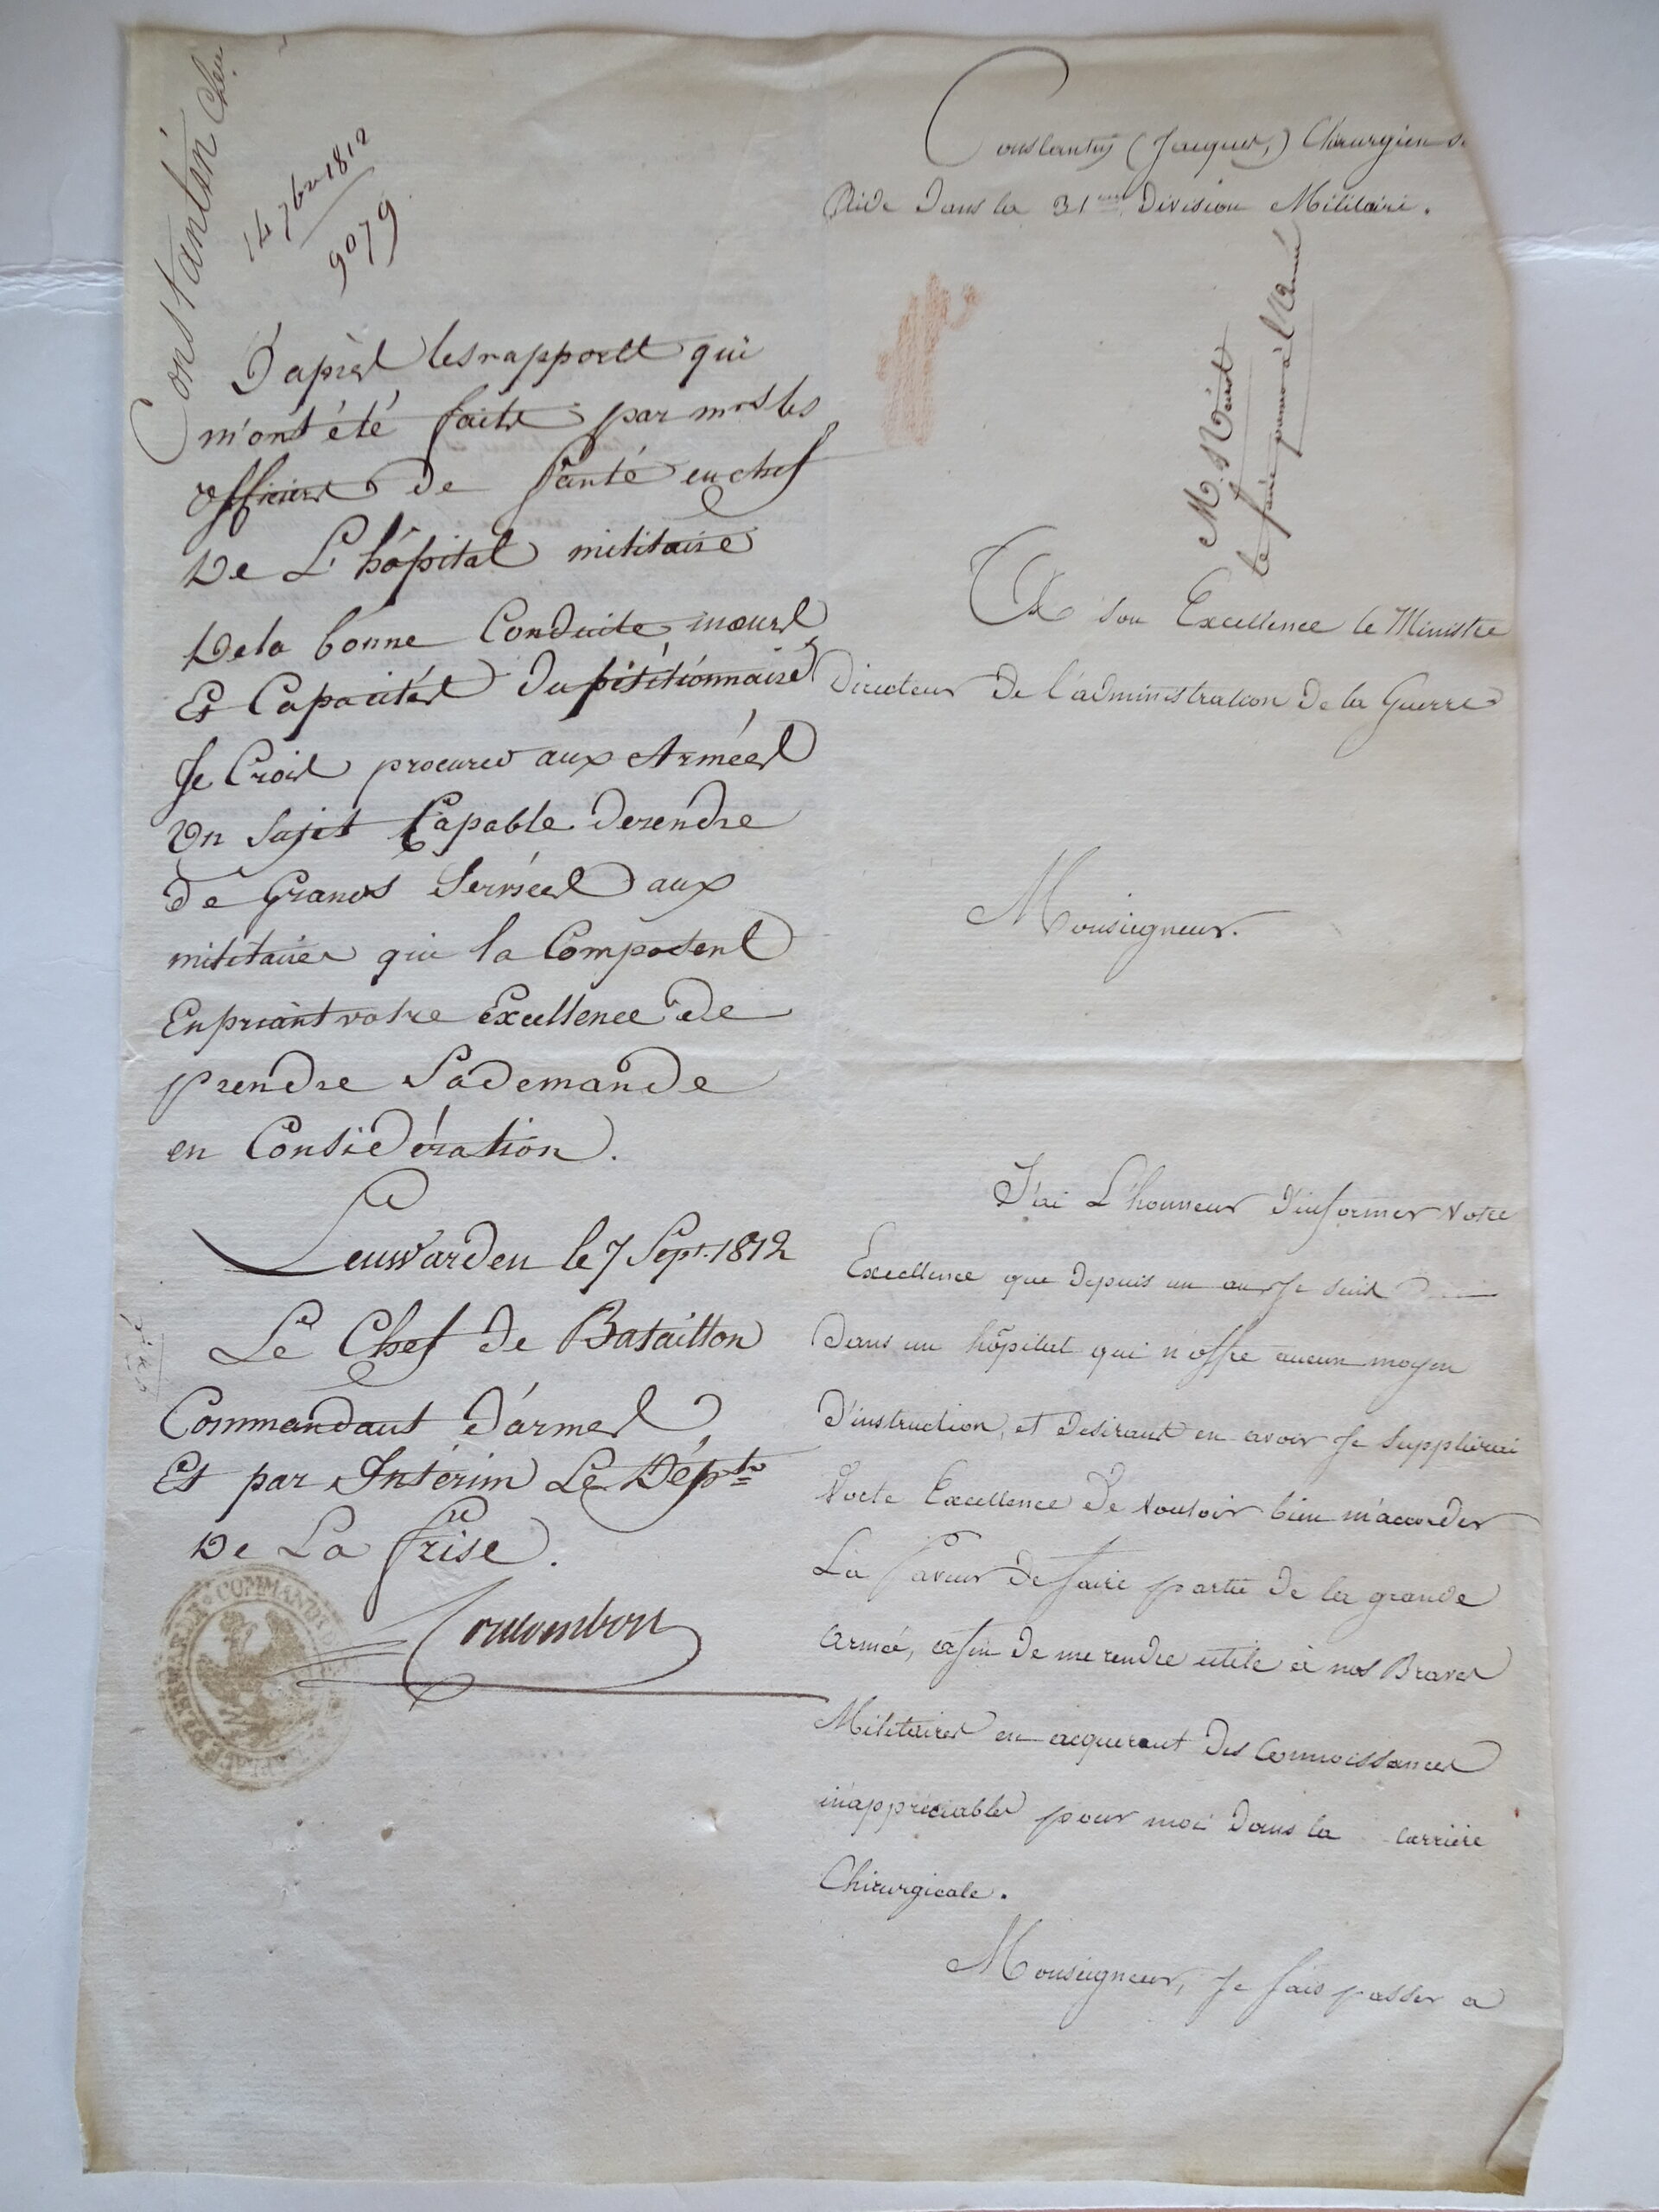 Constantin Chen
14 7bre 1812
9079
D'aprèst les rapportt qui
m'ont été faits par mrs les
officiers de santé en chef
De L'hôpital militaire
De la bonne Conduite, mœurs,
Et Capacités du pétitionnaire
Je Crois procurer aux Armées
Un Sujet Capable de rendre
De Grands Services aux
militaires qui la Composent
En priant votre Excellence de
prendre Sa demande
en Considération.
Leuwarden le 7 Sept. 1812
Le Chef de Bataillon
Commandant D'armes,
Et par Intérim Le Dépt
De La frise.
Coulombon
COMMAND
Constantin (Jacques,) Chirurgien S.
Aide Dans la 31me Division Militaire.
M.
le faire passer à l'Armée
A Son Excellence le Ministre
Directeur De l'administration De la Guerre
Monseigneur.
J'ai L'honneur D'informer Votre
Excellence que Depuis un an Je suis
Dans un hôpital qui n'offre aucun moyen
D'instruction, et Desirant en avoir Je Supplierai
Votre Excellence De Vouloir bien m'accorder
La faveur De faire partie De la grande
armée, afin De me rendre utile à nos Braves
Militaires en acquerant Des Connoissances
inappréciables pour moi Dans la carrière
Chirurgicale.
Monseigneur, Je fais passer a